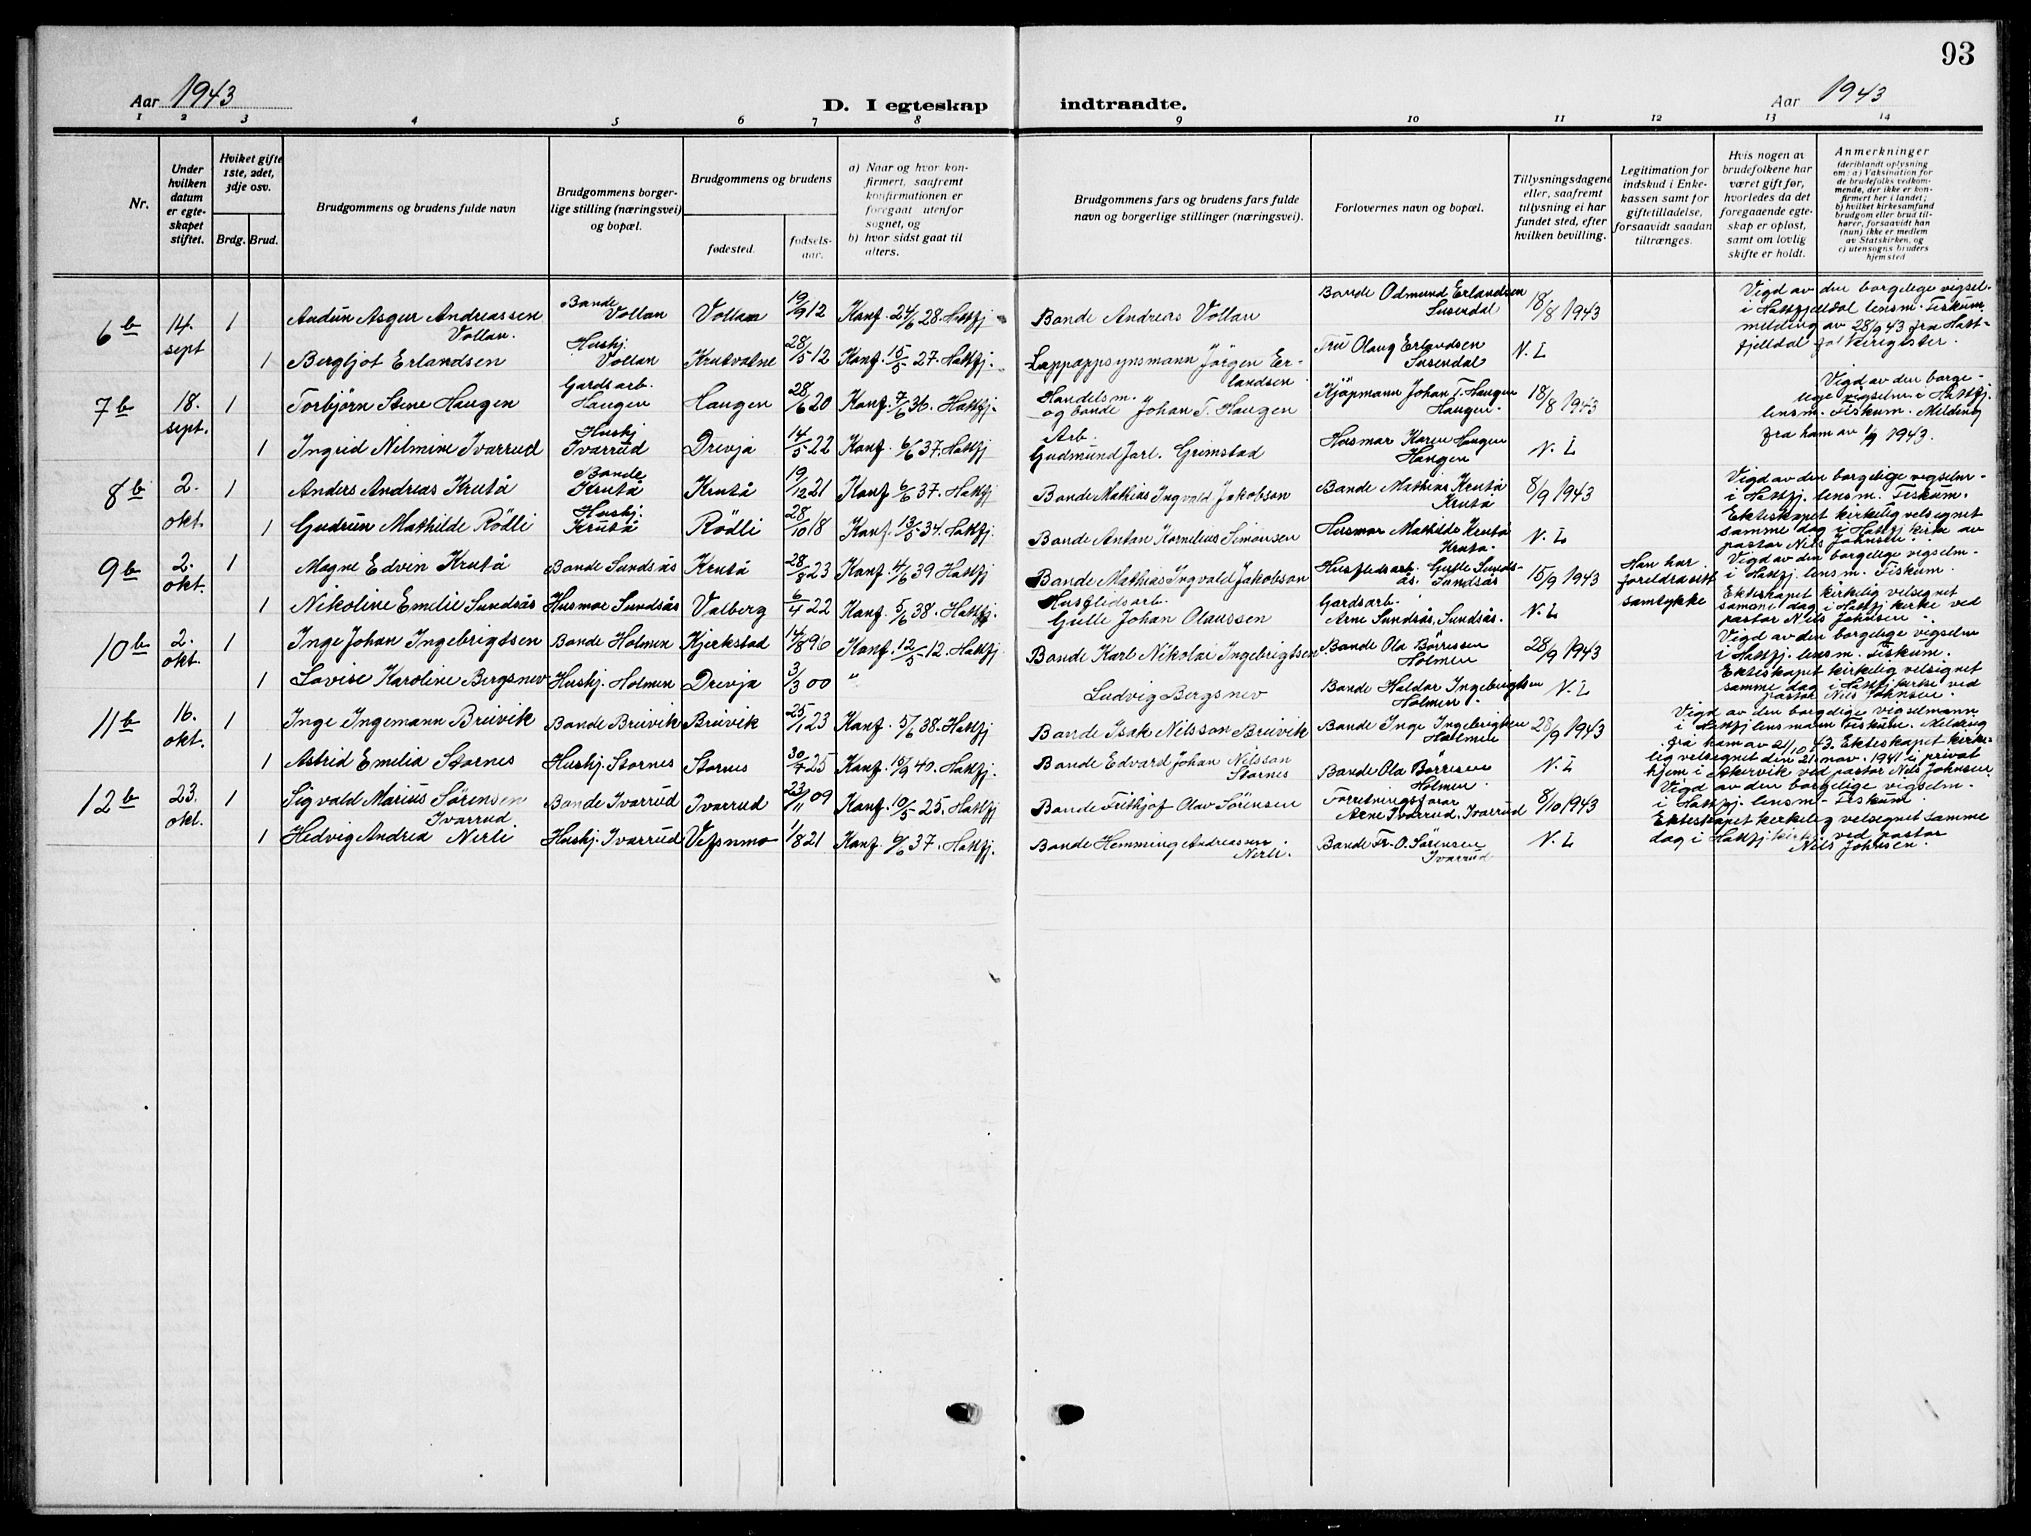 93
Aar 1943
D. I egteskap indtraadte.
Aar 1943
1 2 3 4 5 6 7 8 9 10 11 12 13 14
Nr.
Under hvilken datum er egteskapet stiftet.
Hviket gifte 1ste, 2det, 3dje osv.
Brdg. Brud.
Brudgommens og brudens fulde navn
Brudgommens borgerlige stilling (næringsvei) og bopæl.
Brudgommens og brudens
fødested.
fødselsaar.
a) Naar og hvor konfirmert, saafremt konfirmationen er foregaat utenfor sognet, og
b) hvor sidst gaat til alters.
Brudgommens fars og brudens fars fulde navn og borgerlige stillinger (næringsvei).
Forlovernes navn og bopæl.
Tillysningsdagene eller, saafremt tillysning ei har fundet sted, efter hvilken bevilling.
Legitimation for indskud i Enkekassen samt for giftetilladelse, forsaavidt saadan tiltrænges.
Hvis nogen av brudefolkene har været gift før, hvorledes da det foregaaende egteskap er opløst, samt om lovlig skifte er holdt.
Anmerkninger
(deriblandt oplysning om: a) Vaksination for de brudefolks vedkommende, der ikke er konfirmert her i landet; b) hvilket kirkesamfund brudgom eller brud tilhører, forsaavidt han (hun) ikke er medlem av Statskirken, og c) utensogns bruders hjemsted
6b 14. sept 1 Audun Asgur Andreassen Vollan. Bonde Vollan Vollan 19/9 12 Konf. 24/6 28. Hattfj. Bonde Andreas Vollan Bonde Odmund Erlandsen Susendal 18/8 1943 Vigd av den borgelege vigsel- i Hattfjelldal lensm. Fiskum. melding av 28/9 43 fra Hattfjelldal fol keregister.
1 Bergljot Erlandsen Hushj. Vollan Krukvatne 28/5 12 Konf. 15/5 27. Hattfj. Lappoppsynsmann Jörgen Erlandsen Fru Olaug Erlandsen Susendal N. L
7b 18. sept. 1 Torbjörn Stene Haugen Gardsarb. Haugen Haugen 28/6 20 Konf. 7/6 36. Hattfj. Handelsm. og bonde Johan T. Haugen Kjöpmann Johan T. Haugen Haugen. 18/8 1943 Vigd av den borgelege vigselm. i Hattfj. lensm. Fiskum. Melding fra ham av 1/9 1943.
1 Ingrid Nilmine Ivarrud Hushj Ivarrud Drevja 14/5 22 Konf. 6/6 37. Hattfj Arb. Gudmund Jarl. Grimstad Husmor Karen Haugen Haugen N. L
8b 2. okt. 1 Anders Andreas Krutå Bonde Krutå Krutå 19/12 21 Konf. 6/6 37. Hattfj Bonde Mathias Ingvald Jakobson Bonde Mathias Krutå Krutå 8/9 1943 Vigd av den borgelige vigselm- i Hattfj. lensm. Fiskum. Ekteskapet kirkelig velsignet samme dag i Hattfj kirke av pastor Nils Johnsen.
1 Gudrun Mathilde Rödli Hushj. Krutå Rödli 28/10 18 Konf. 13/5 34. Hattfj. Bonde Anton Kornelius Simonsen Husmor Mathilde Krutå Krutå. N. L
9b 2. okt. 1 Magne Edvin Krutå Bonde Sundsås Krutå 28/9 23 Konf. 4/6 39 Hattfj Bonde Mathias Ingvald Jakobson Husflidsarb. Gulle Sundsås. Sundsås 15/9 1943 Han har foreldres samtykke Vigd av den borgelige vigselm. i Hattfj. lensm. Fiskum. Ekteskapet kirkelig velsignet samme dag i Hattfj kirke ved pastor Nils Johnsen.
1 Nikoline Emilie Sundsås Husmor Sundsås Valberg 6/4 22 Konf. 5/6 38. Hattfj. Husflidsarb. Gulle Johan Olaussen Gardsarb. Arne Sundsås, Sundsås. N. L
10b 2. okt. 1 Inge Johan Ingebrigtsen Bonde Holmen Kjerkstad 14/8 96 Konf. 12/5 12. Hattfj Bonde Karl Nikolai Ingebrigtsen Bonde Ola Börresen Holmen 28/9 1943 Vigd av den borgelige vigselm i Hattfj. lensm. Fiskum. Ekteskapet kirkelig velsignet samme dag i Hattfj kirke ved pastor Nils Johnsen.
1 Lovise Karoline Bergsnev Hushj. Holmen Drevja 3/3 00 " Ludvig Bergsnev Bonde Haldor Ingebrigtsen Holmen. N. L
11b 16. okt. 1 Inge Ingemann Breivik Bonde Breivik Breivik 25/1 23 Konf. 5/6 38. Hattfj Bonde Isak Nilsson Breivik Bonde Inge Ingebrigtsen Holmen 28/9 1943 Vigd av den borgelige vigselmann i Hattfj lensmann Fiskum. Melding fra ham av 21/10 43. Ekteskapet kirkelig velsignet den 21. nov. 1941 i privat hjem i Skervik ved pastor Nils Johnsen.
1 Astrid Emilia Stornes Hushj. Stornes Stornes 30/7 25 Konf. 15/9 40. Hattfj. Bonde Edvard Johan Nilsson Stornes Bonde Ola Börresen Holmen. N. L
12b 23. okt. 1 Sigvald Marius Sörensen Ivarrud Bonde Ivarrud Ivarrud 23/11 09 Konf. 10/5 25. Hattfj Bonde Frithjof Olav Sörensen Forretningsförer Arne Ivarrud, Ivarrud 8/10 1943 Vigd av den borgelige vigselm. i Hattfj. lensm. Fiskum. Ekteskapet kirkelig velsignet samme dag i Hattfj. kirke ved pastor Nils Johnsen.
1 Hedvig Andrea Nerli Hushj. Ivarrud Vefsnmo 1/8 21 Konf. 6/6 37. Hattfj. Bonde Hemming Andreassen Nerli. Bonde Fr. O. Sörensen Ivarrud N. L